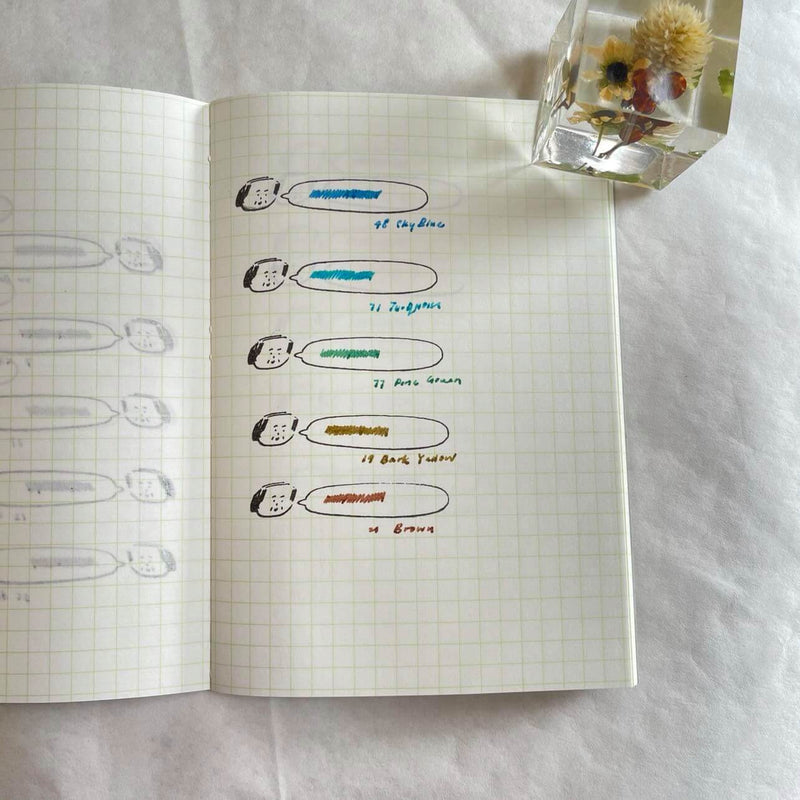 48 Sky Blue
71 Turquoise
77 Green
19 Dark Yellow
Brown